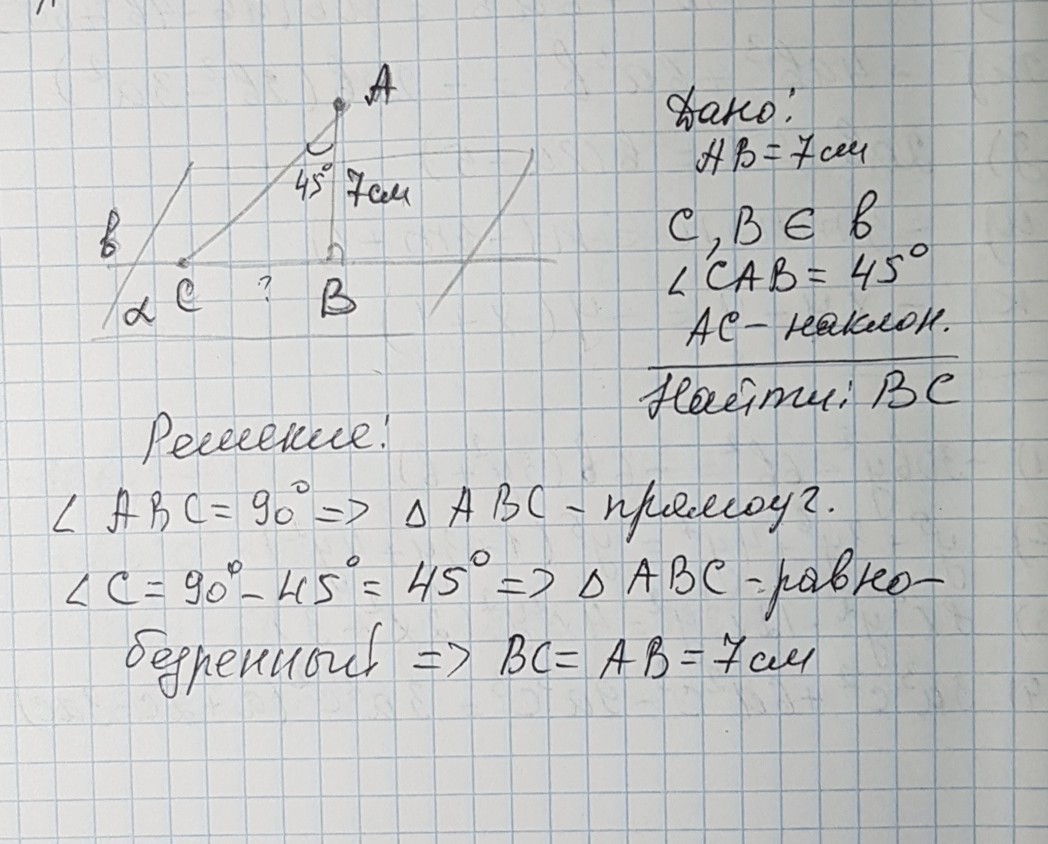 A
45° 7см
в
α C ? B
Дано:
AB = 7 см
C, B ∈ в
∠ CAB = 45°
AC - наклон.
Найти: BC
Решение:
∠ ABC = 90° => △ ABC - прямоуг.
∠ C = 90° - 45° = 45° => △ ABC - равно-
бедренный => BC = AB = 7 см